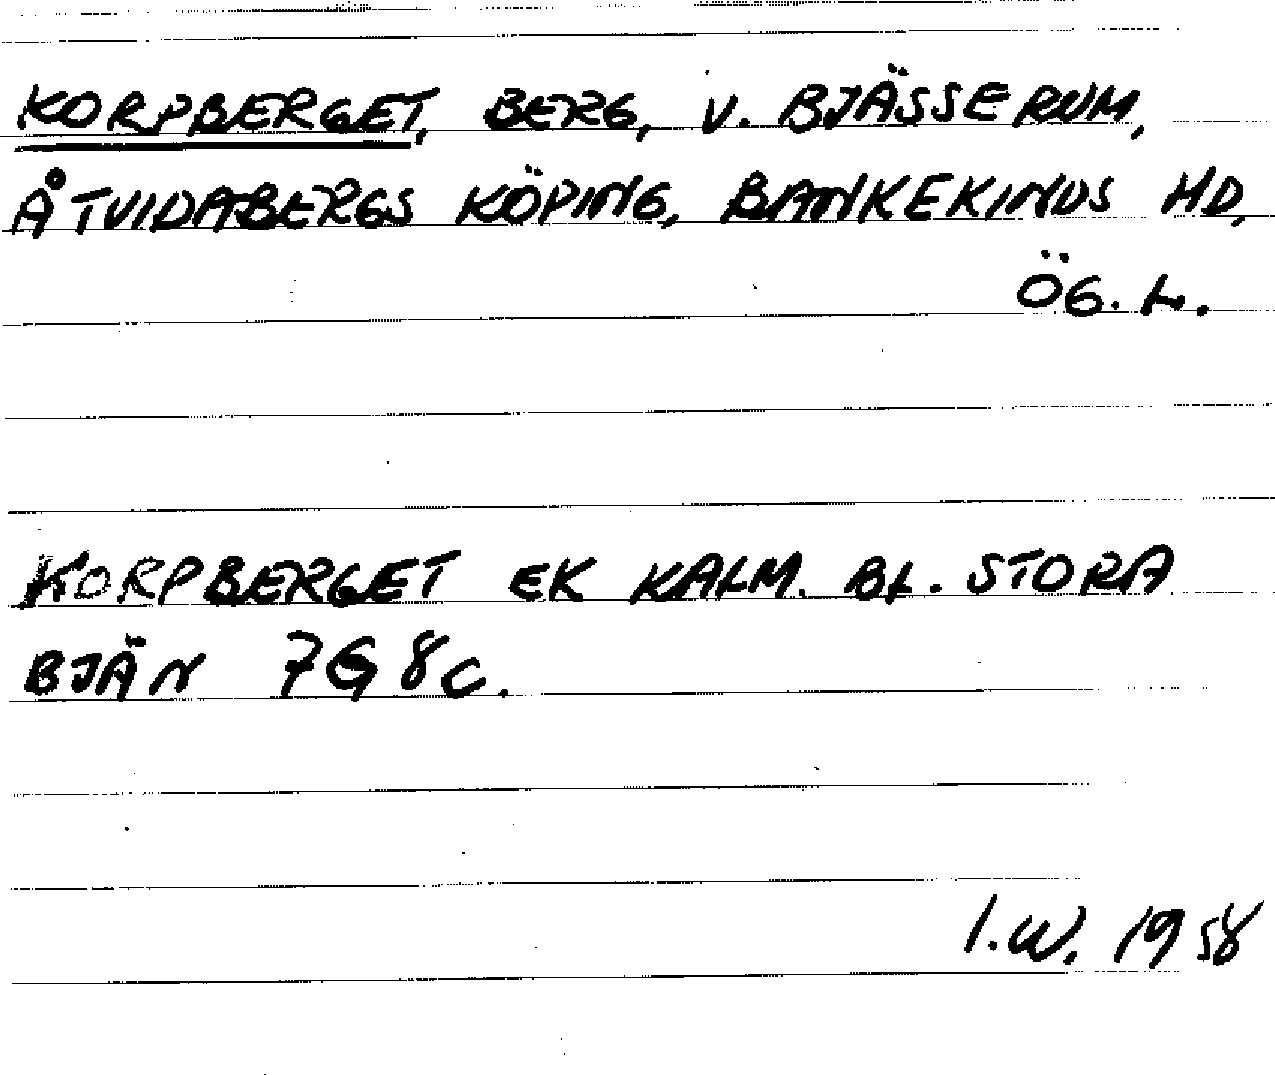 KORPBERGET, BERG, V. BJÄSSERUM,
ÅTVIDABERGS KÖPING, BANKEKINDS HD,
ÖG. L.
KORPBERGET EK KALM. BL. STORA
BJÄN 7G 8c.
I.W. 1958